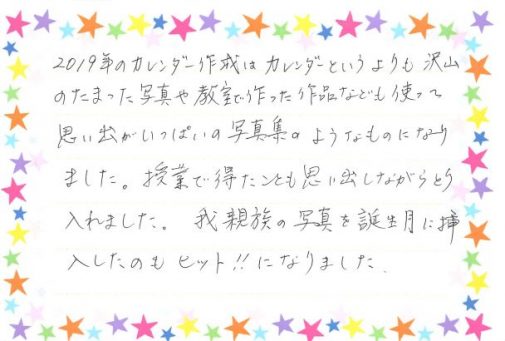 2019年のカレンダー作成はカレンダーというよりも沢山
のたまった写真や教室で作った作品なども使って
思い出がいっぱいの写真集のようなものになり
ました。授業で得たことも思い出しながらとり
入れました。我親族の写真を誕生月に挿
入したのもヒット!!になりました.